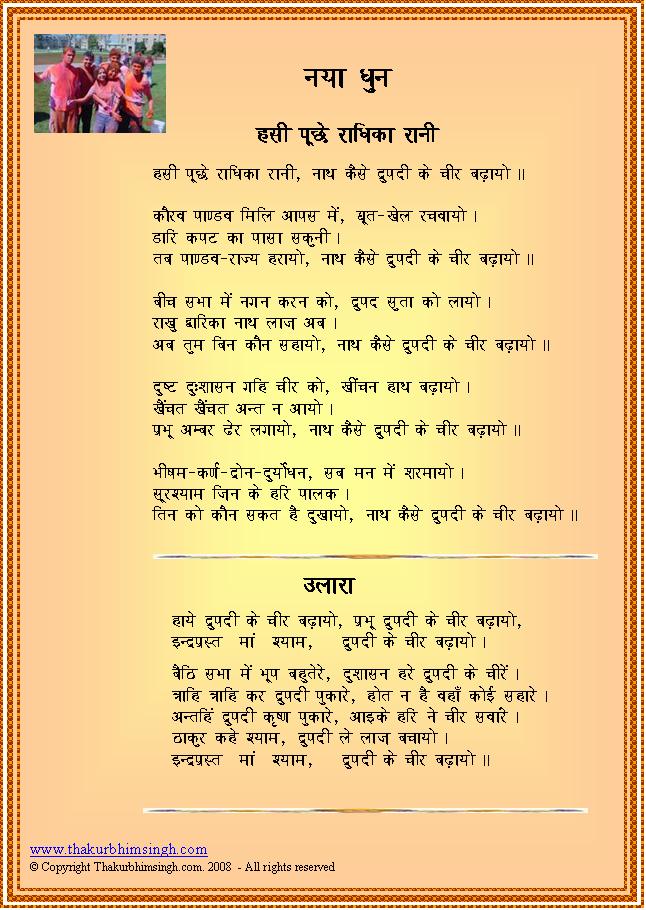 नया धुन
हसी पूछे राधिका रानी
हसी पूछे राधिका रानी, नाथ कैसे दुपदी के चीर बढ़ायो ॥
कौरव पाण्डव मिलि आपस में, द्यूत-खेल रचवायो ।
डारि कपट का पासा सकुनी ।
तब पाण्डव-राज्य हरायो, नाथ कैसे दुपदी के चीर बढ़ायो ॥
बीच सभा में नगन करन को, दुपद सुता को लायो ।
राखु द्वारिका नाथ लाज़ अब ।
अब तुम बिन कौन सहायो, नाथ कैसे दुपदी के चीर बढ़ायो ॥
दुष्ट दुःशासन गहि चीर को, खींचन हाथ बढ़ायो ।
खैंचत खैंचत अन्त न आयो ।
प्रभू अम्बर ढेर लगायो, नाथ कैसे दुपदी के चीर बढ़ायो ॥
भीषम-कर्ण-द्रोन-दुर्योधन, सब मन में शरमायो ।
सूरश्याम ज़िन के हरि पालक ।
तिन को कौन सकत है दुखायो, नाथ कैसे दुपदी के चीर बढ़ायो ॥
उलारा
हाये दुपदी के चीर बढ़ायो, प्रभू दुपदी के चीर बढ़ायो,
इन्द्रप्रस्त मां श्याम, दुपदी के चीर बढ़ायो ।
बैठि सभा में भूप बहुतेरे, दुशासन हरे दुपदी के चीरें ।
त्राहि त्राहि कर दुपदी पुकारे, होत न है वहाँ कोई सहारे ।
अन्तहिं दुपदी कृष्ण पुकारे, आइके हरि ने चीर सवांरे ।
ठाकुर कहे श्याम, दुपदी ले लाज़ बचायो ।
इन्द्रप्रस्त मां श्याम, दुपदी के चीर बढ़ायो ॥
www.thakurbhimsingh.com
© Copyright Thakurbhimsingh.com. 2008 - All rights reserved